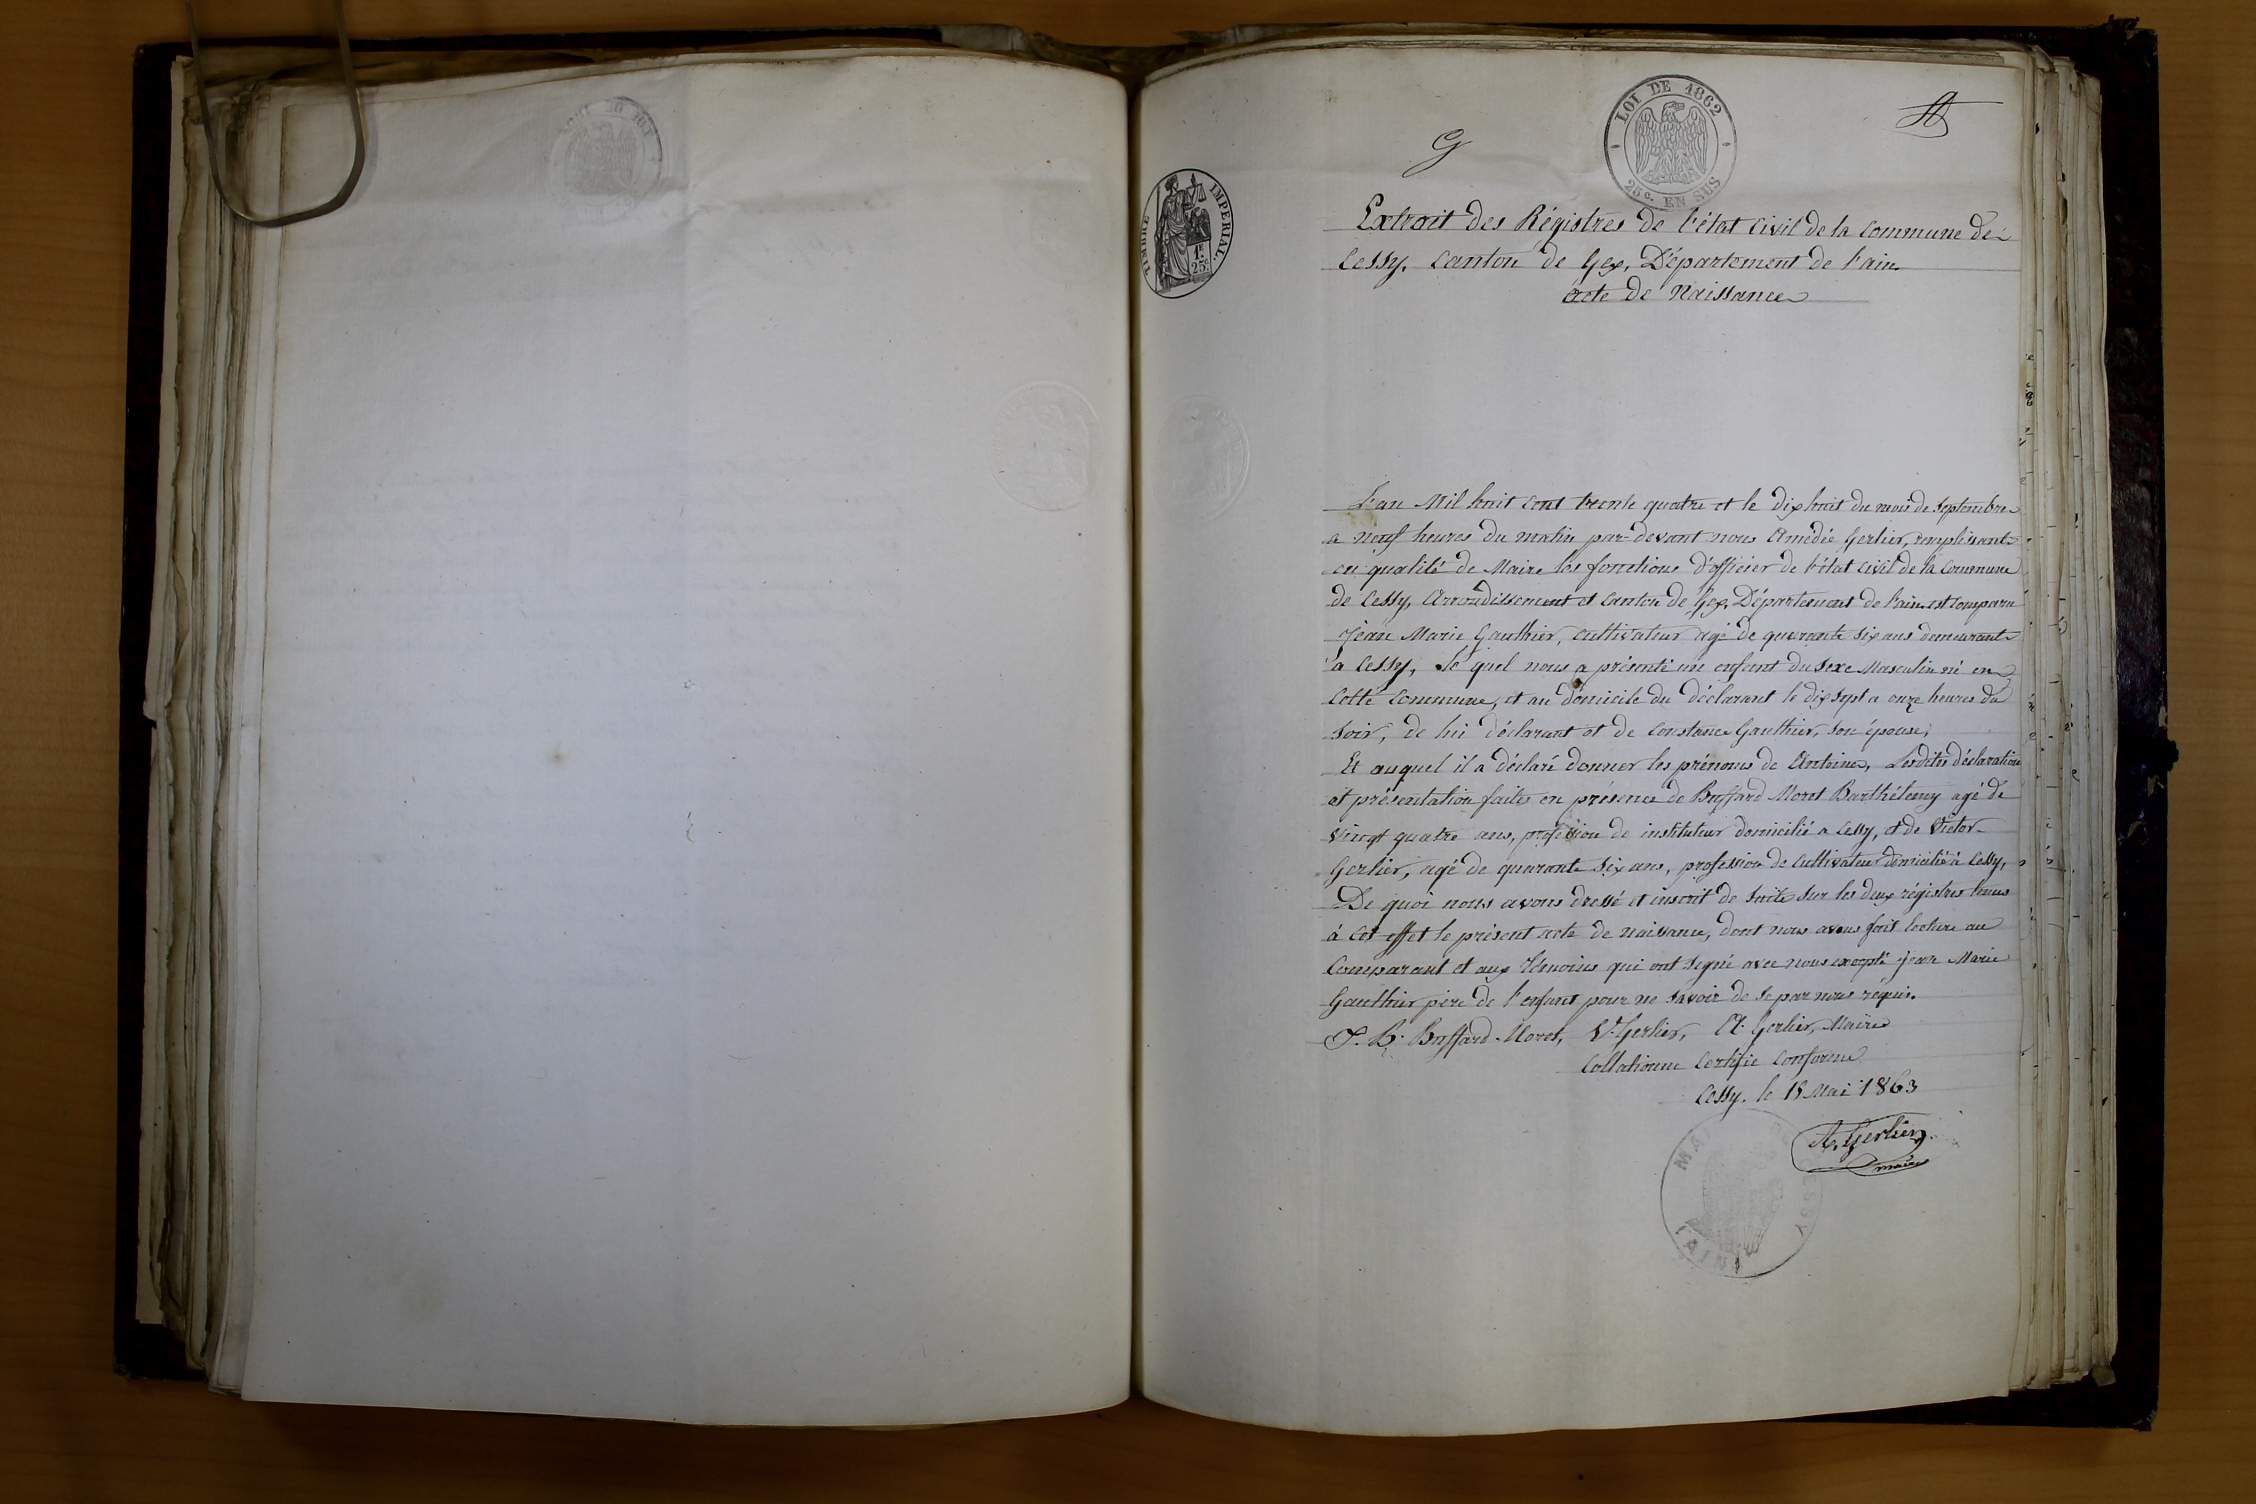 LOI DE 1862
25c. EN SUS
G
TIMBRE IMPERIAL
1F. 25c.
Extrait des Régistres de l'état civil de la commune de
Cessy, Canton de Gex, Département de l'ain
acte de Naissance
L'an Mil huit cent trente quatre et le dix huit du mois de Septembre
a neuf heures du matin par-devant nous Amédée Gerlier, remplissant
en qualité de Maire les fonctions d'officier de l'état civil de la Commune
de Cessy, Arrondissement et Canton de Gex, Département de l'ain est comparu
Jean Marie Gauthier, cultivateur agé de quarante six ans demeurant
a Cessy, le quel nous a présenté un enfant du Sexe Masculin né en
Cette Commune, et au domicile du déclarant le dix sept a onze heures du
Soir, de lui déclarant et de Constance Gauthier, son épouse,
Et auquel il a déclaré donner les prénoms de Antoine, Lesdites déclaration
et présentation faites en présence de Buffard Moret Barthélemy agé de
vingt quatre ans, profession de instituteur domicilié a Cessy, et de Victor
Gerlier, agé de quarante Six ans, profession de Cultivateur domicilié à Cessy,
De quoi nous avons dressé et inscrit de suite sur les deux régistres tenus
à cet effet le présent acte de naissance, dont nous avons fait lecture au
Comparant et aux témoins qui ont signé avec nous excepté Jean Marie
Gauthier père de l'enfant pour ne savoir de ce par nous requis.
B. Buffard-Moret, V. Gerlier, A. Gerlier, Maire
Collationné Certifié Conforme
Cessy, le 18 Mai 1863
A. Gerlier
maire
MAIRIE DE CESSY
(AIN)